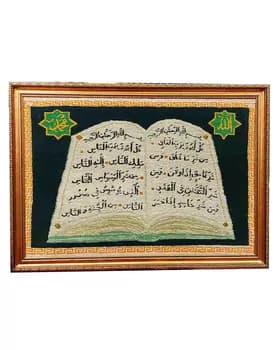 الله
محمد
بسم الله الرحمن الرحيم
قل أعوذ برب الفلق
من شر ما خلق ومن
شر غاسق إذا وقب ومن
شر النفاثات في العقد
ومن شر حاسد إذا حسد
بسم الله الرحمن الرحيم
قل أعوذ برب الناس
ملك الناس إله الناس
من شر الوسواس الخناس
الذي يوسوس في صدور
الناس من الجنة والناس